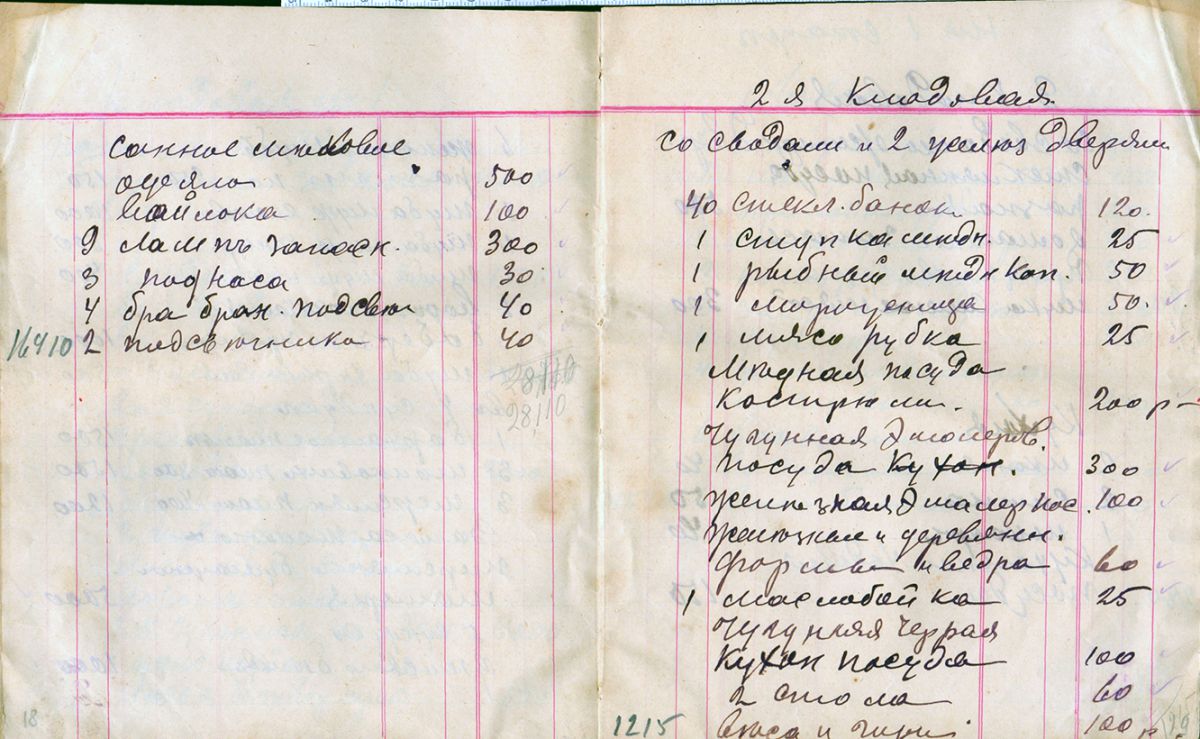 санное меховое
одеяло 500
войлока 100
9 лампъ запасн. 300
3 подноса 30
4 бра бран. подсвеч 40
16410 2 подсвечника 40
28110
28110
18
2я Кладовая
со сводами и 2 желѣз дверями
40 стекл. банок. 120.
1 ступка мѣдн. 25
1 рыбный мѣдн кот. 50
1 мороженица 50.
1 мясорубка 25
Мѣдная посуда
кострюли. 200 р
Чугунная Эмалеров.
посуда кухон. 300
Желѣзная Эмалер пос. 100
Желѣзная и деревянн.
формы и ведра 60
1 маслобойка 25
Чугунная Черная
Кухон посуда 100
2 стола 60
1215 и гири 100 р